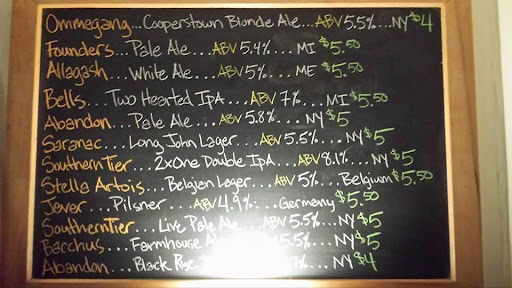 Ommegang...Cooperstown Blonde Ale...ABV 5.5%...NY $4
Founders...Pale Ale....ABV 5.4%....MI $5.50
Allagash....White Ale....ABV 5%....ME $5.50
Bells....Two Hearted IPA....ABV 7%....MI $5.50
Abandon....Pale Ale....ABV 5.8%....NY $5
Saranac....Long John Lager...ABV 5.5%....NY $5
Southern Tier....2xOne Double IPA....ABV 8.1%....NY $5
Stella Artois...Belgien Lager....ABV 5%....Belgium $5.50
Jever....Pilsner....ABV 4.9%....Germany $5.50
Southern Tier....Live Pale Ale...ABV 5.5%...NY $5
Bacchus....Farmhouse 5.5%....NY $5
Abandon....Black Rye NY $4